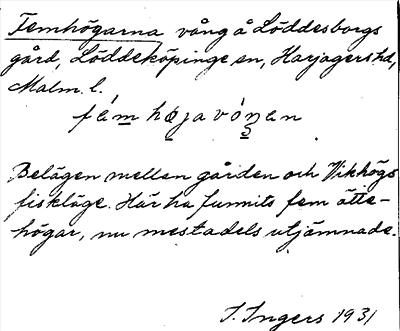 Femhögarna vång å Löddesborgs
gård, Löddeköpinge sn, Harjagers hd,
Malm. l.
fám høja vóŋen
Belägen mellan gården och Vikhögs
fiskläge. Här ha funnits fem ätte-
högar, nu mestadels utjämnade.
I. Ingers 1931